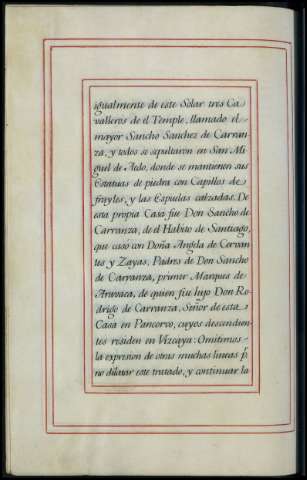 igualmente de este Solar tres Ca
valleros de el Temple, llamado el
mayor Sancho Sanchez de Carran
za, y todos se sepultaron en San Mi
guel de Aedo, donde se mantienen sus
Estatuas de piedra con Capillos de
frayles, y las Espuelas calzadas. De
esta propia Casa fue Don Sancho de
Carranza, de el Habito de Santiago,
que casó con Doña Angela de Cervan
tes y Zayas, Padres de Don Sancho
de Carranza, primer Marques de
Aravaca, de quien fue hijo Don Ro
drigo de Carranza, Señor de esta
Casa en Pancorvo, cuyos descendien
tes residen en Vizcaya: Omitimos
la expresion de otras muchas lineas pr.
no dilatar este tratado, y continuar la